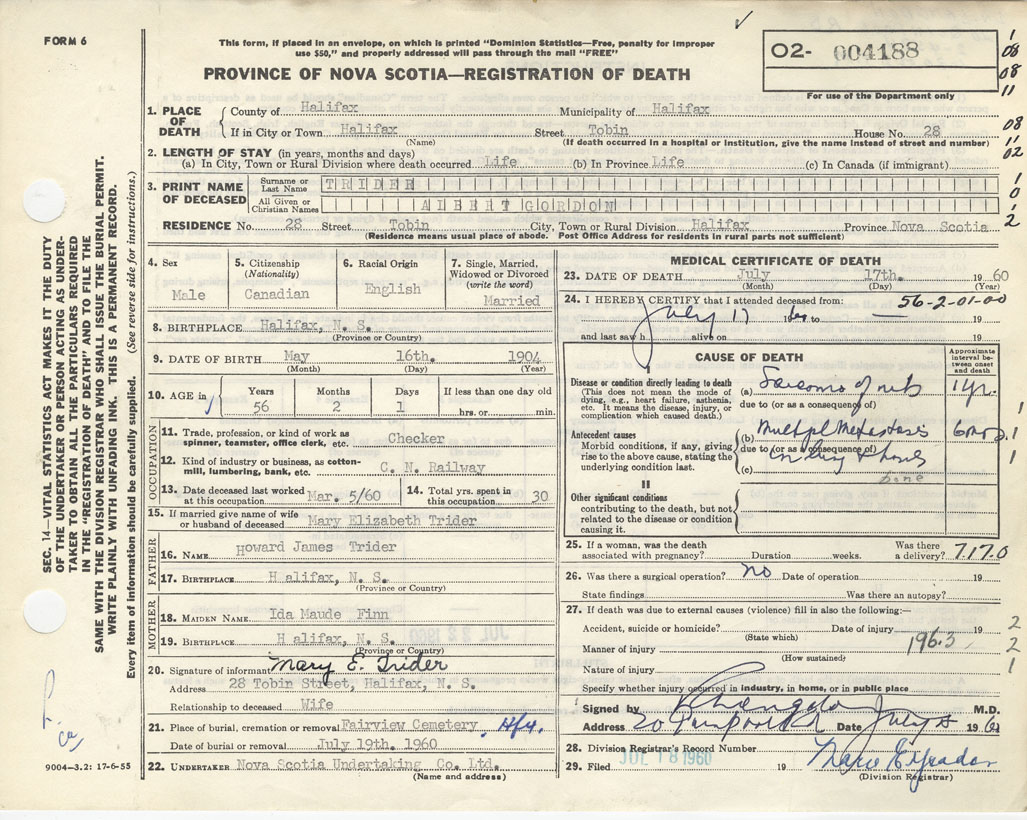 FORM 6
This form, if placed in an envelope, on which is printed "Dominion Statistics—Free, penalty for improper
use $50," and properly addressed will pass through the mail "FREE"
PROVINCE OF NOVA SCOTIA—REGISTRATION OF DEATH
02- 004188
For use of the Department only
1
08
08
11
08
11
02
1
0
1
2
SEC. 14—VITAL STATISTICS ACT MAKES IT THE DUTY
OF THE UNDERTAKER OR PERSON ACTING AS UNDER-
TAKER TO OBTAIN ALL THE PARTICULARS REQUIRED
IN THE "REGISTRATION OF DEATH" AND TO FILE THE
SAME WITH THE DIVISION REGISTRAR WHO SHALL ISSUE THE BURIAL PERMIT.
WRITE PLAINLY WITH UNFADING INK. THIS IS A PERMANENT RECORD.
Every item of information should be carefully supplied. (See reverse side for instructions.)
1. PLACE OF DEATH
County of Halifax Municipality of Halifax
If in City or Town Halifax Street Tobin House No. 28
(Name) (If death occurred in a hospital or institution, give the name instead of street and number)
2. LENGTH OF STAY (in years, months and days)
(a) In City, Town or Rural Division where death occurred Life (b) In Province Life (c) In Canada (if immigrant)
3. PRINT NAME OF DECEASED
Surname or Last Name TRIDER
All Given or Christian Names ALBERT GORDON
RESIDENCE No. 28 Street Tobin City, Town or Rural Division Halifax Province Nova Scotia
(Residence means usual place of abode. Post Office Address for residents in rural parts not sufficient)
4. Sex Male
5. Citizenship (Nationality) Canadian
6. Racial Origin English
7. Single, Married, Widowed or Divorced (write the word) Married
8. BIRTHPLACE Halifax, N. S.
(Province or Country)
9. DATE OF BIRTH May 16th. 1904
(Month) (Day) (Year)
10. AGE in Years 56 Months 2 Days 1 If less than one day old hrs. or min.
OCCUPATION
11. Trade, profession, or kind of work as spinner, teamster, office clerk, etc. Checker
12. Kind of industry or business, as cotton-mill, lumbering, bank, etc. C. N. Railway
13. Date deceased last worked at this occupation Mar. 5/60 14. Total yrs. spent in this occupation 30
15. If married give name of wife or husband of deceased Mary Elizabeth Trider
FATHER
16. NAME Howard James Trider
17. BIRTHPLACE Halifax, N. S.
(Province or Country)
MOTHER
18. MAIDEN NAME Ida Maude Finn
19. BIRTHPLACE Halifax, N. S.
(Province or Country)
20. Signature of informant Mary E. Trider
Address 28 Tobin Street, Halifax, N. S.
Relationship to deceased Wife
21. Place of burial, cremation or removal Fairview Cemetery, Hfx.
Date of burial or removal July 19th. 1960
22. UNDERTAKER Nova Scotia Undertaking Co. Ltd.
(Name and address)
9004—3.2: 17-6-55
MEDICAL CERTIFICATE OF DEATH
23. DATE OF DEATH July 17th. 1960
(Month) (Day) (Year)
24. I HEREBY CERTIFY that I attended deceased from: 56-2-01-00
July 17 1960 to — 19
and last saw h alive on 19
CAUSE OF DEATH
Approximate interval between onset and death
Disease or condition directly leading to death
(This does not mean the mode of dying, e.g., heart failure, asthenia, etc. It means the disease, injury, or complication which caused death.)
(a) Sarcoma of 1 yr.
due to (or as a consequence of)
Antecedent causes
Morbid conditions, if any, giving rise to the above cause, stating the underlying condition last.
(b) Multiple Metastasis 6 mos
due to (or as a consequence of)
(c)
bone
II
Other significant conditions
contributing to the death, but not related to the disease or condition causing it.
1
1
1
25. If a woman, was the death associated with pregnancy? Duration weeks. Was there a delivery? 7170
26. Was there a surgical operation? no Date of operation 19
State findings Was there an autopsy?
27. If death was due to external causes (violence) fill in also the following:—
Accident, suicide or homicide? Date of injury 19
(State which)
Manner of injury 196.3
(How sustained)
Nature of injury
Specify whether injury occurred in industry, in home, or in public place
2
2
1
Signed by M.D.
Address Date July 18 1960
28. Division Registrar's Record Number
29. Filed JUL 18 1960 19
(Division Registrar)